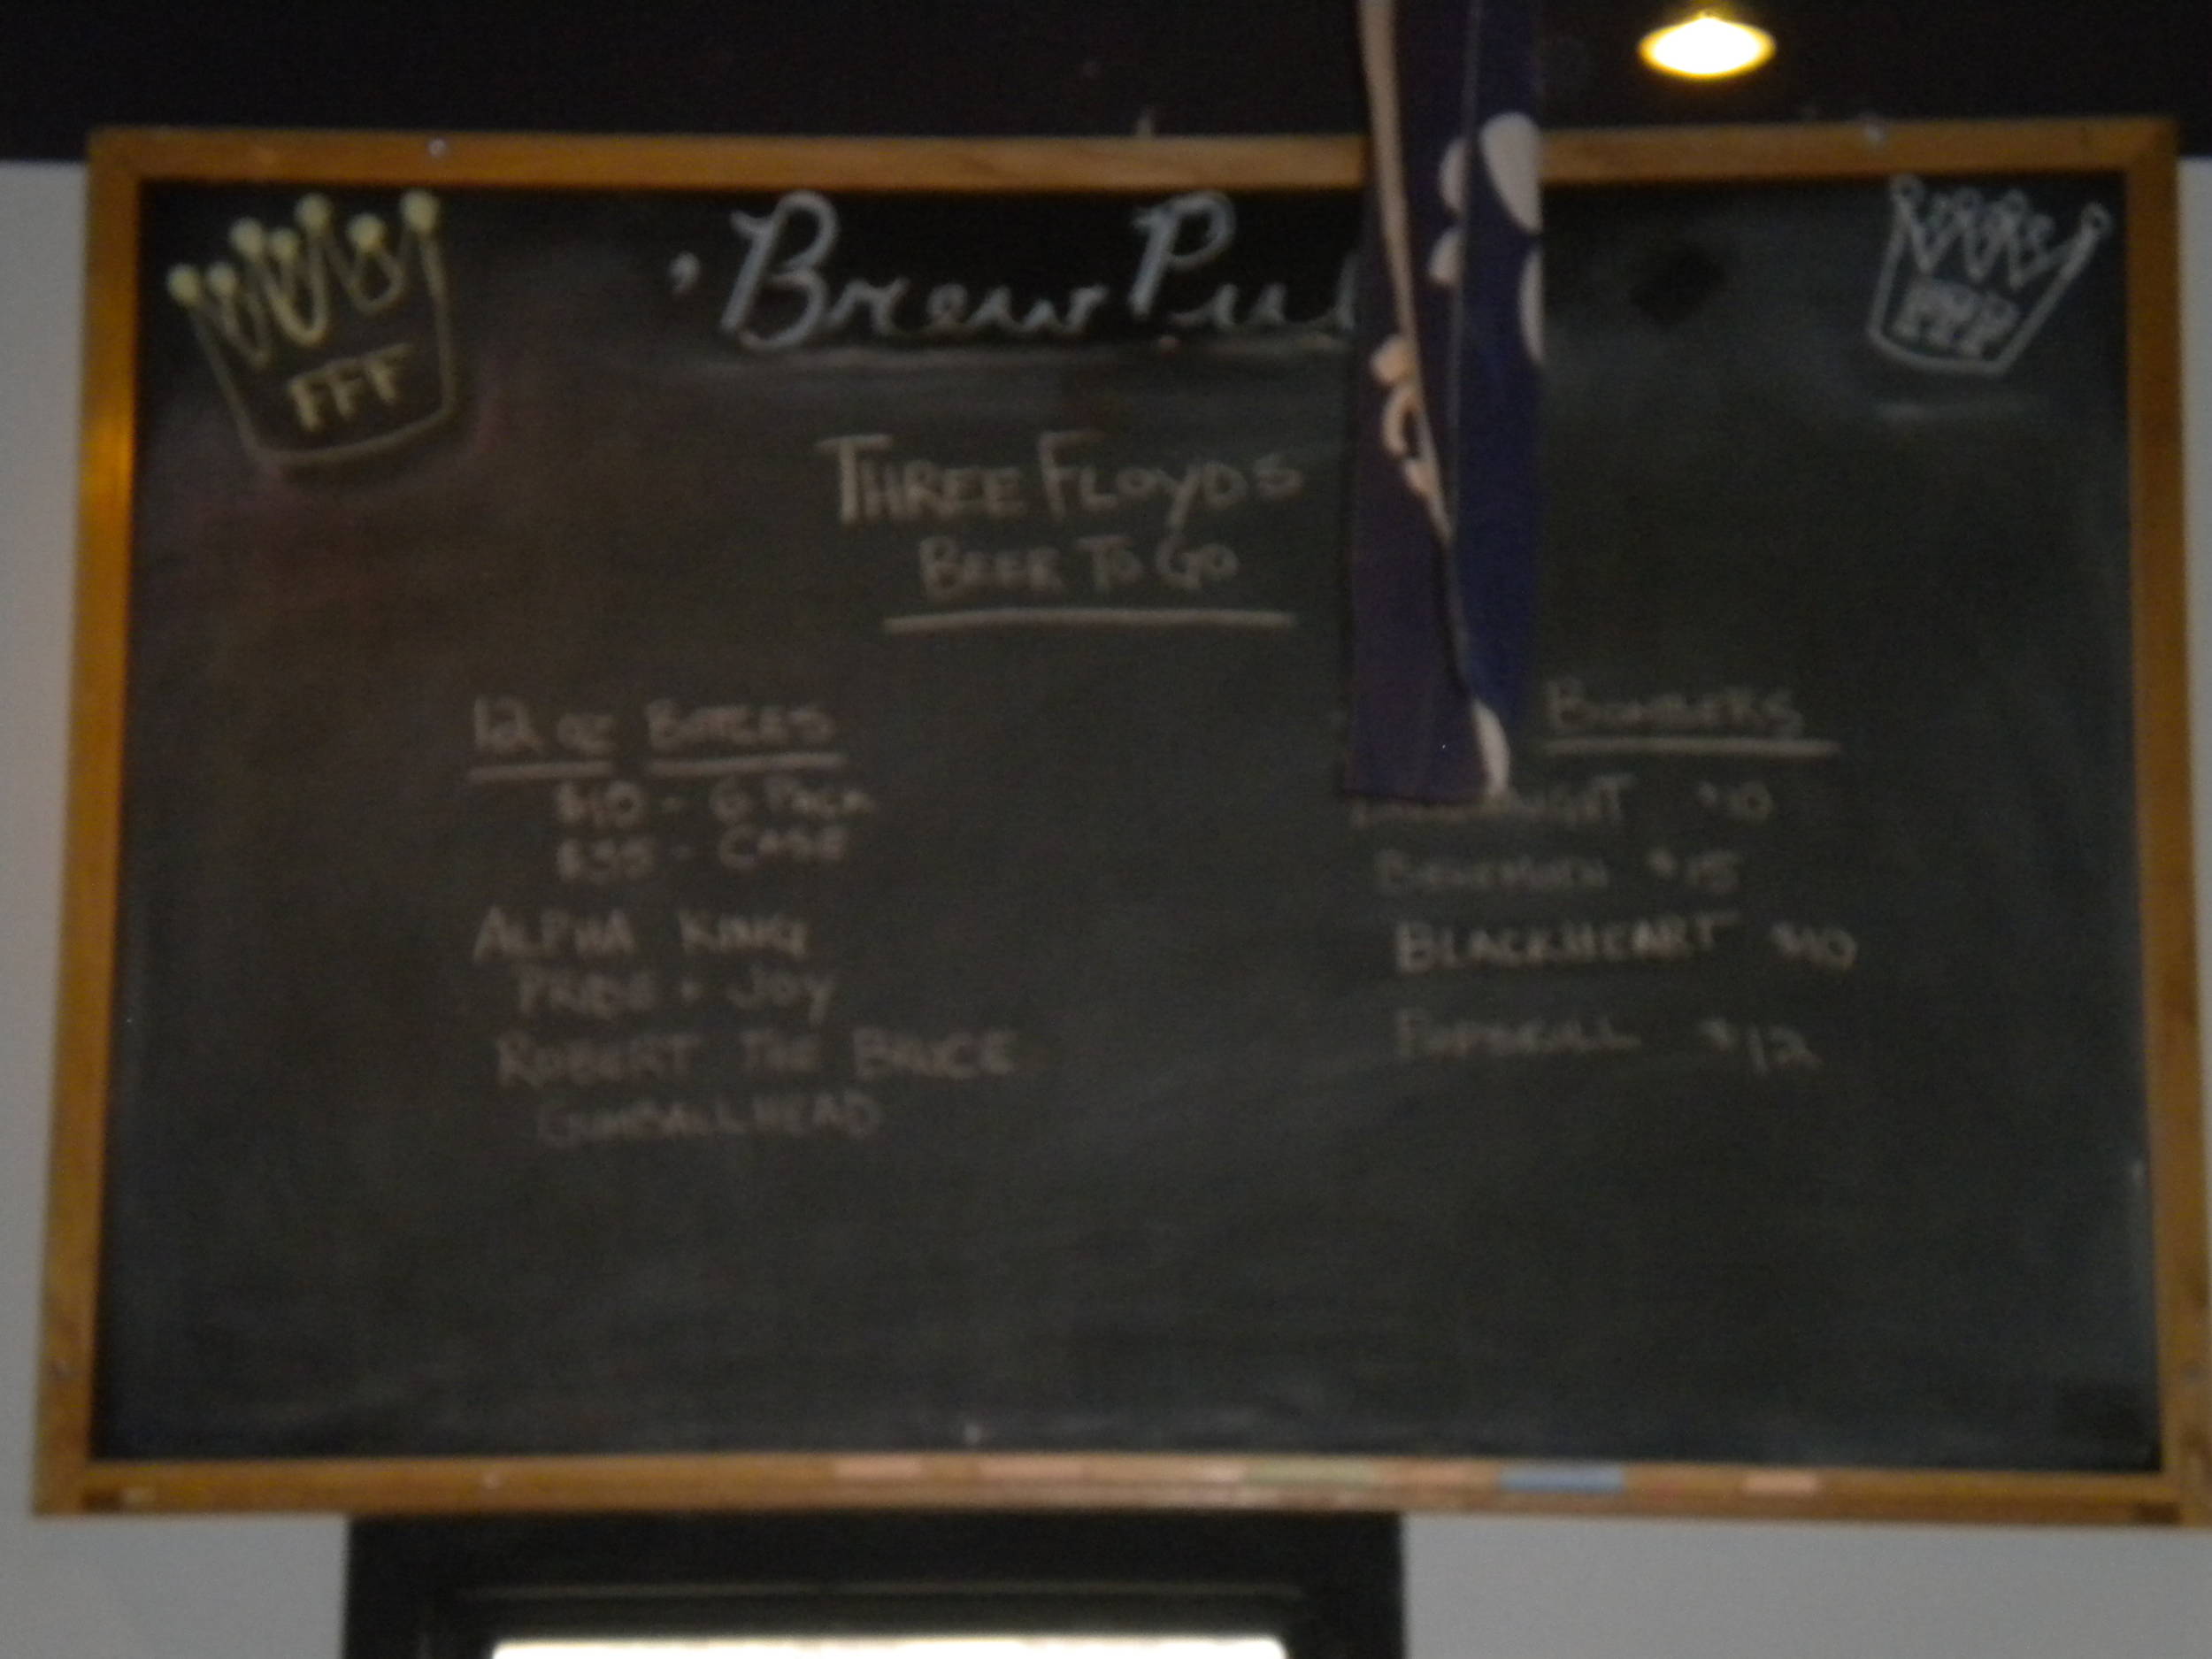 Brew Pu
FFF
FFF
THREE FLOYDS
BEER TO GO
12 oz BOTTLES
$10 - 6 PACK
$35 - CASE
ALPHA KING
PRIDE + JOY
ROBERT THE BRUCE
GUMBALLHEAD
BOMBERS
$10
BEHEMOTH $15
BLACKHEART $10
POPSKULL $12